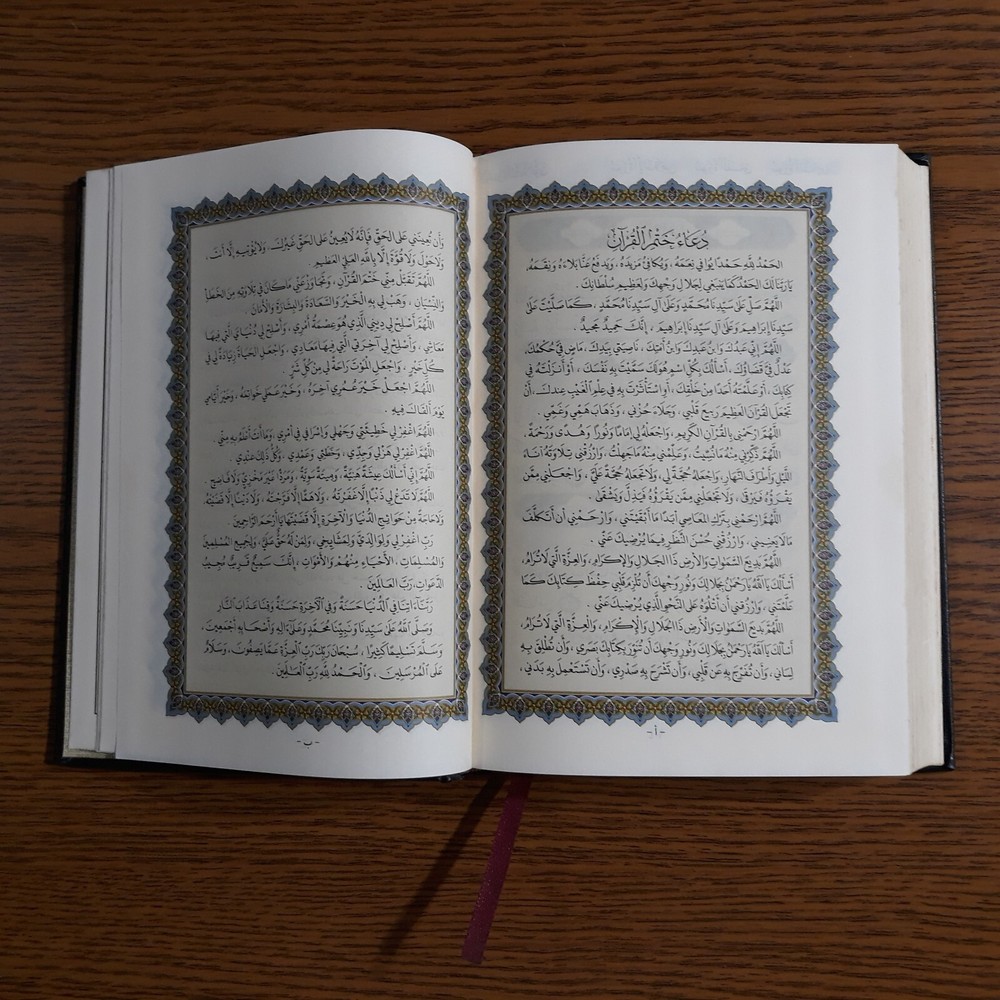 دُعَاءُ خَتْمِ الْقُرْآنِ
الحَمْدُ لِلَّهِ حَمْدًا يُوَافِي نِعَمَهُ ، وَيُكَافِئُ مَزِيدَهُ ، وَيَدْفَعُ عَنَّا بَلَاءَهُ وَنِقَمَهُ ،
يَا رَبَّنَا لَكَ الحَمْدُ كَمَا يَنْبَغِي لِجَلَالِ وَجْهِكَ وَلِعَظِيمِ سُلْطَانِكَ .
اللَّهُمَّ صَلِّ عَلَىٰ سَيِّدِنَا مُحَمَّدٍ وَعَلَىٰ آلِ سَيِّدِنَا مُحَمَّدٍ ، كَمَا صَلَّيْتَ عَلَىٰ
سَيِّدِنَا إِبرَاهِيمَ وَعَلَىٰ آلِ سَيِّدِنَا إِبرَاهِيمَ ، إِنَّكَ حَمِيدٌ مَجِيدٌ .
اللَّهُمَّ إِنِّي عَبْدُكَ وَابْنُ عَبْدِكَ وَابْنُ أَمَتِكَ ، نَاصِيَتِي بِيَدِكَ ، مَاضٍ فِيَّ حُكْمُكَ ،
عَدْلٌ فِيَّ قَضَاؤُكَ ، أَسْأَلُكَ بِكُلِّ اسْمٍ هُوَ لَكَ سَمَّيْتَ بِهِ نَفْسَكَ ، أَوْ أَنْزَلْتَهُ فِي
كِتَابِكَ ، أَوْ عَلَّمْتَهُ أَحَدًا مِنْ خَلْقِكَ ، أَوِ اسْتَأْثَرْتَ بِهِ فِي عِلْمِ الْغَيْبِ عِنْدَكَ ، أَنْ
تَجْعَلَ القُرْآنَ العَظِيمَ رَبِيعَ قَلْبِي ، وَجَلَاءَ حُزْنِي ، وَذَهَابَ هَمِّي وَغَمِّي .
اللَّهُمَّ ارْحَمْنِي بِالقُرْآنِ الكَرِيمِ ، وَاجْعَلْهُ لِي إِمَامًا وَنُورًا وَهُدًى وَرَحْمَةً .
اللَّهُمَّ ذَكِّرْنِي مِنْهُ مَا نُسِّيتُ ، وَعَلِّمْنِي مِنْهُ مَا جَهِلْتُ ، وَارْزُقْنِي تِلَاوَتَهُ آنَاءَ
اللَّيْلِ وَأَطْرَافَ النَّهَارِ ، وَاجْعَلْهُ حُجَّةً لِي ، وَلَا تَجْعَلْهُ حُجَّةً عَلَيَّ ، وَاجْعَلْنِي مِمَّنْ
يَقْرَؤُهُ فَيَرْقَى ، وَلَا تَجْعَلْنِي مِمَّنْ يَقْرَؤُهُ فَيَذِلُّ وَيَشْقَى .
اللَّهُمَّ ارْحَمْنِي بِتَرْكِ المَعَاصِي أَبَدًا مَا أَبْقَيْتَنِي ، وَارْحَمْنِي أَنْ أَتَكَلَّفَ
مَا لَا يَعْنِينِي ، وَارْزُقْنِي حُسْنَ النَّظَرِ فِيمَا يُرْضِيكَ عَنِّي .
اللَّهُمَّ بَدِيعَ السَّمَوَاتِ وَالأَرْضِ ذَا الجَلَالِ وَالإِكْرَامِ ، وَالعِزَّةِ الَّتِي لَا تُرَامُ ،
أَسْأَلُكَ يَا اللَّهُ يَا رَحْمَنُ بِجَلَالِكَ وَنُورِ وَجْهِكَ أَنْ تُلْزِمَ قَلْبِي حِفْظَ كِتَابِكَ كَمَا
عَلَّمْتَنِي ، وَارْزُقْنِي أَنْ أَتْلُوَهُ عَلَى النَّحْوِ الَّذِي يُرْضِيكَ عَنِّي .
اللَّهُمَّ بَدِيعَ السَّمَوَاتِ وَالأَرْضِ ذَا الجَلَالِ وَالإِكْرَامِ ، وَالعِزَّةِ الَّتِي لَا تُرَامُ ،
أَسْأَلُكَ يَا اللَّهُ يَا رَحْمَنُ بِجَلَالِكَ وَنُورِ وَجْهِكَ أَنْ تُنَوِّرَ بِكِتَابِكَ بَصَرِي ، وَأَنْ تُطْلِقَ بِهِ
لِسَانِي ، وَأَنْ تُفَرِّجَ بِهِ عَنْ قَلْبِي ، وَأَنْ تَشْرَحَ بِهِ صَدْرِي ، وَأَنْ تَسْتَعْمِلَ بِهِ بَدَنِي ،
- أ -
وَأَنْ تُعِينَنِي عَلَى الحَقِّ فَإِنَّهُ لَا يُعِينُ عَلَى الحَقِّ غَيْرُكَ ، وَلَا يُؤْتِيهِ إِلَّا أَنْتَ ،
وَلَا حَوْلَ وَلَا قُوَّةَ إِلَّا بِاللَّهِ العَلِيِّ العَظِيمِ .
اللَّهُمَّ تَقَبَّلْ مِنِّي خَتْمَ القُرْآنِ ، وَتَجَاوَزْ عَنِّي مَا كَانَ فِي تِلَاوَتِهِ مِنَ الخَطَأِ
وَالنِّسْيَانِ ، وَهَبْ لِي بِهِ الخَيْرَ وَالسَّعَادَةَ وَالبِشَارَةَ وَالأَمَانَ .
اللَّهُمَّ أَصْلِحْ لِي دِينِي الَّذِي هُوَ عِصْمَةُ أَمْرِي ، وَأَصْلِحْ لِي دُنْيَايَ الَّتِي فِيهَا
مَعَاشِي ، وَأَصْلِحْ لِي آخِرَتِي الَّتِي فِيهَا مَعَادِي ، وَاجْعَلِ الحَيَاةَ زِيَادَةً لِي فِي
كُلِّ خَيْرٍ ، وَاجْعَلِ المَوْتَ رَاحَةً لِي مِنْ كُلِّ شَرٍّ .
اللَّهُمَّ اجْعَلْ خَيْرَ عُمْرِي آخِرَهُ ، وَخَيْرَ عَمَلِي خَوَاتِمَهُ ، وَخَيْرَ أَيَّامِي
يَوْمَ أَلْقَاكَ فِيهِ .
اللَّهُمَّ اغْفِرْ لِي خَطِيئَتِي وَجَهْلِي وَإِسْرَافِي فِي أَمْرِي ، وَمَا أَنْتَ أَعْلَمُ بِهِ مِنِّي .
اللَّهُمَّ اغْفِرْ لِي هَزْلِي وَجِدِّي ، وَخَطَئِي وَعَمْدِي ، وَكُلُّ ذَلِكَ عِنْدِي .
اللَّهُمَّ إِنِّي أَسْأَلُكَ عِيشَةً هَنِيَّةً ، وَمِيتَةً سَوِيَّةً ، وَمَرَدًّا غَيْرَ مُخْزٍ وَلَا فَاضِحٍ .
اللَّهُمَّ لَا تَدَعْ لِي ذَنْبًا إِلَّا غَفَرْتَهُ ، وَلَا هَمًّا إِلَّا فَرَّجْتَهُ ، وَلَا دَيْنًا إِلَّا قَضَيْتَهُ
وَلَا حَاجَةً مِنْ حَوَائِجِ الدُّنْيَا وَالآخِرَةِ إِلَّا قَضَيْتَهَا يَا أَرْحَمَ الرَّاحِمِينَ .
رَبِّ اغْفِرْ لِي وَلِوَالِدَيَّ وَلِمَشَايِخِي ، وَلِمَنْ لَهُ حَقٌّ عَلَيَّ ، وَلِجَمِيعِ المُسْلِمِينَ
وَالمُسْلِمَاتِ ، الأَحْيَاءِ مِنْهُمْ وَالأَمْوَاتِ ، إِنَّكَ سَمِيعٌ قَرِيبٌ مُجِيبُ
الدَّعَوَاتِ ، رَبَّ العَالَمِينَ .
رَبَّنَا آتِنَا فِي الدُّنْيَا حَسَنَةً وَفِي الآخِرَةِ حَسَنَةً وَقِنَا عَذَابَ النَّارِ
وَصَلَّى اللَّهُ عَلَى سَيِّدِنَا وَنَبِيِّنَا مُحَمَّدٍ وَعَلَى آلِهِ وَأَصْحَابِهِ أَجْمَعِينَ ،
وَسَلَّمَ تَسْلِيمًا كَثِيرًا ، سُبْحَانَ رَبِّكَ رَبِّ العِزَّةِ عَمَّا يَصِفُونَ ، وَسَلَامٌ
عَلَى المُرْسَلِينَ ، وَالحَمْدُ لِلَّهِ رَبِّ العَالَمِينَ .
- ب -